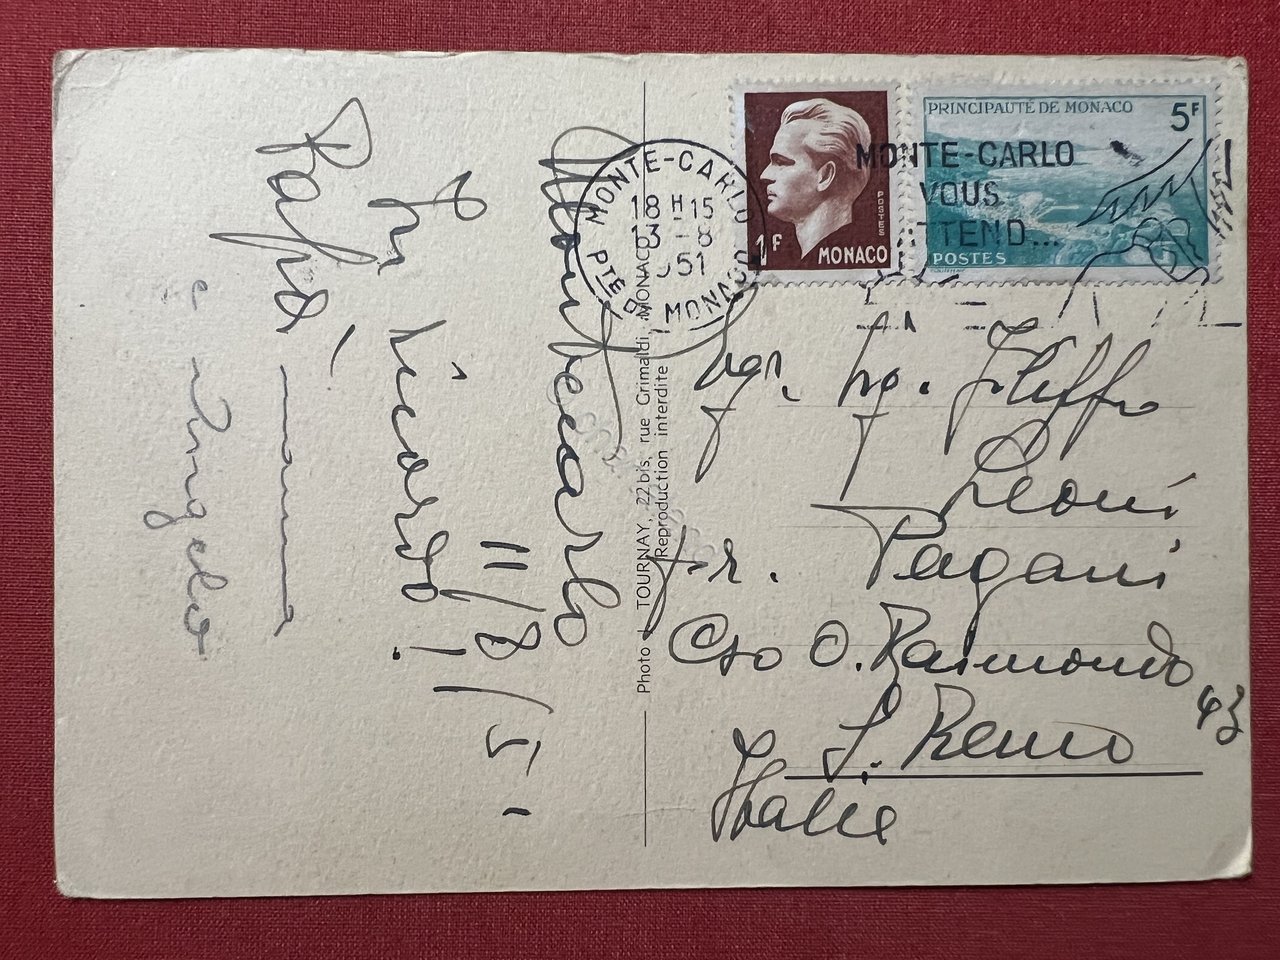 Montecarlo
11/8/51
Un ricordo!
Papà, mamma
e Angelo
Photo TOURNAY, 22 bis, rue Grimaldi, MONACO
Reproduction interdite
MONTE-CARLO
18 H 15
13 -8
951
PTÉ DE MONACO
1F
POSTES
MONACO
PRINCIPAUTÉ DE MONACO
5F
POSTES
MONTE-CARLO
VOUS
ATTEND...
Leoni
Pagani
Cso O. Raimondo 43
S. Remo
Italie